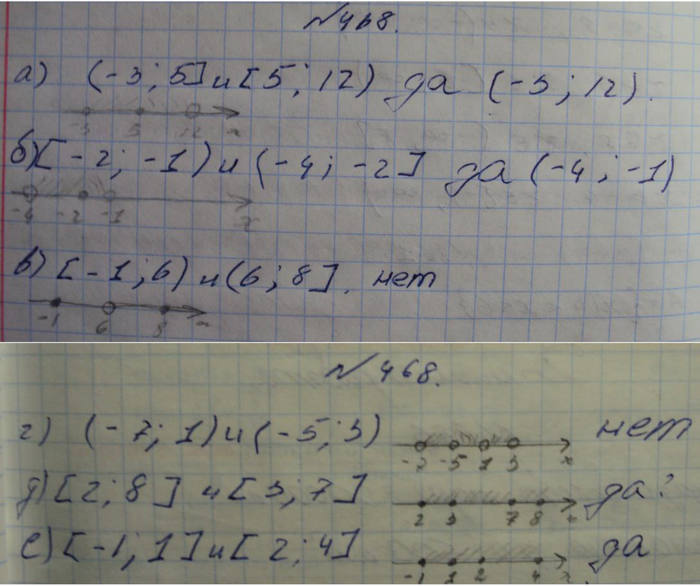 №468.
а) (-3; 5] и [5; 12) да (-3; 12).
-3 5 12 x
б) [-2; -1) и (-4; -2] да (-4; -1)
-4 -2 -1 x
в) [-1; 6) и (6; 8]. нет
-1 6 8 x
№468.
г) (-7; 1) и (-5; 3) нет
-7 -5 1 3 x
д) [2; 8] и [3; 7] да?
2 3 7 8 x
е) [-1; 1] и [2; 4] да
-1 1 2 4 x